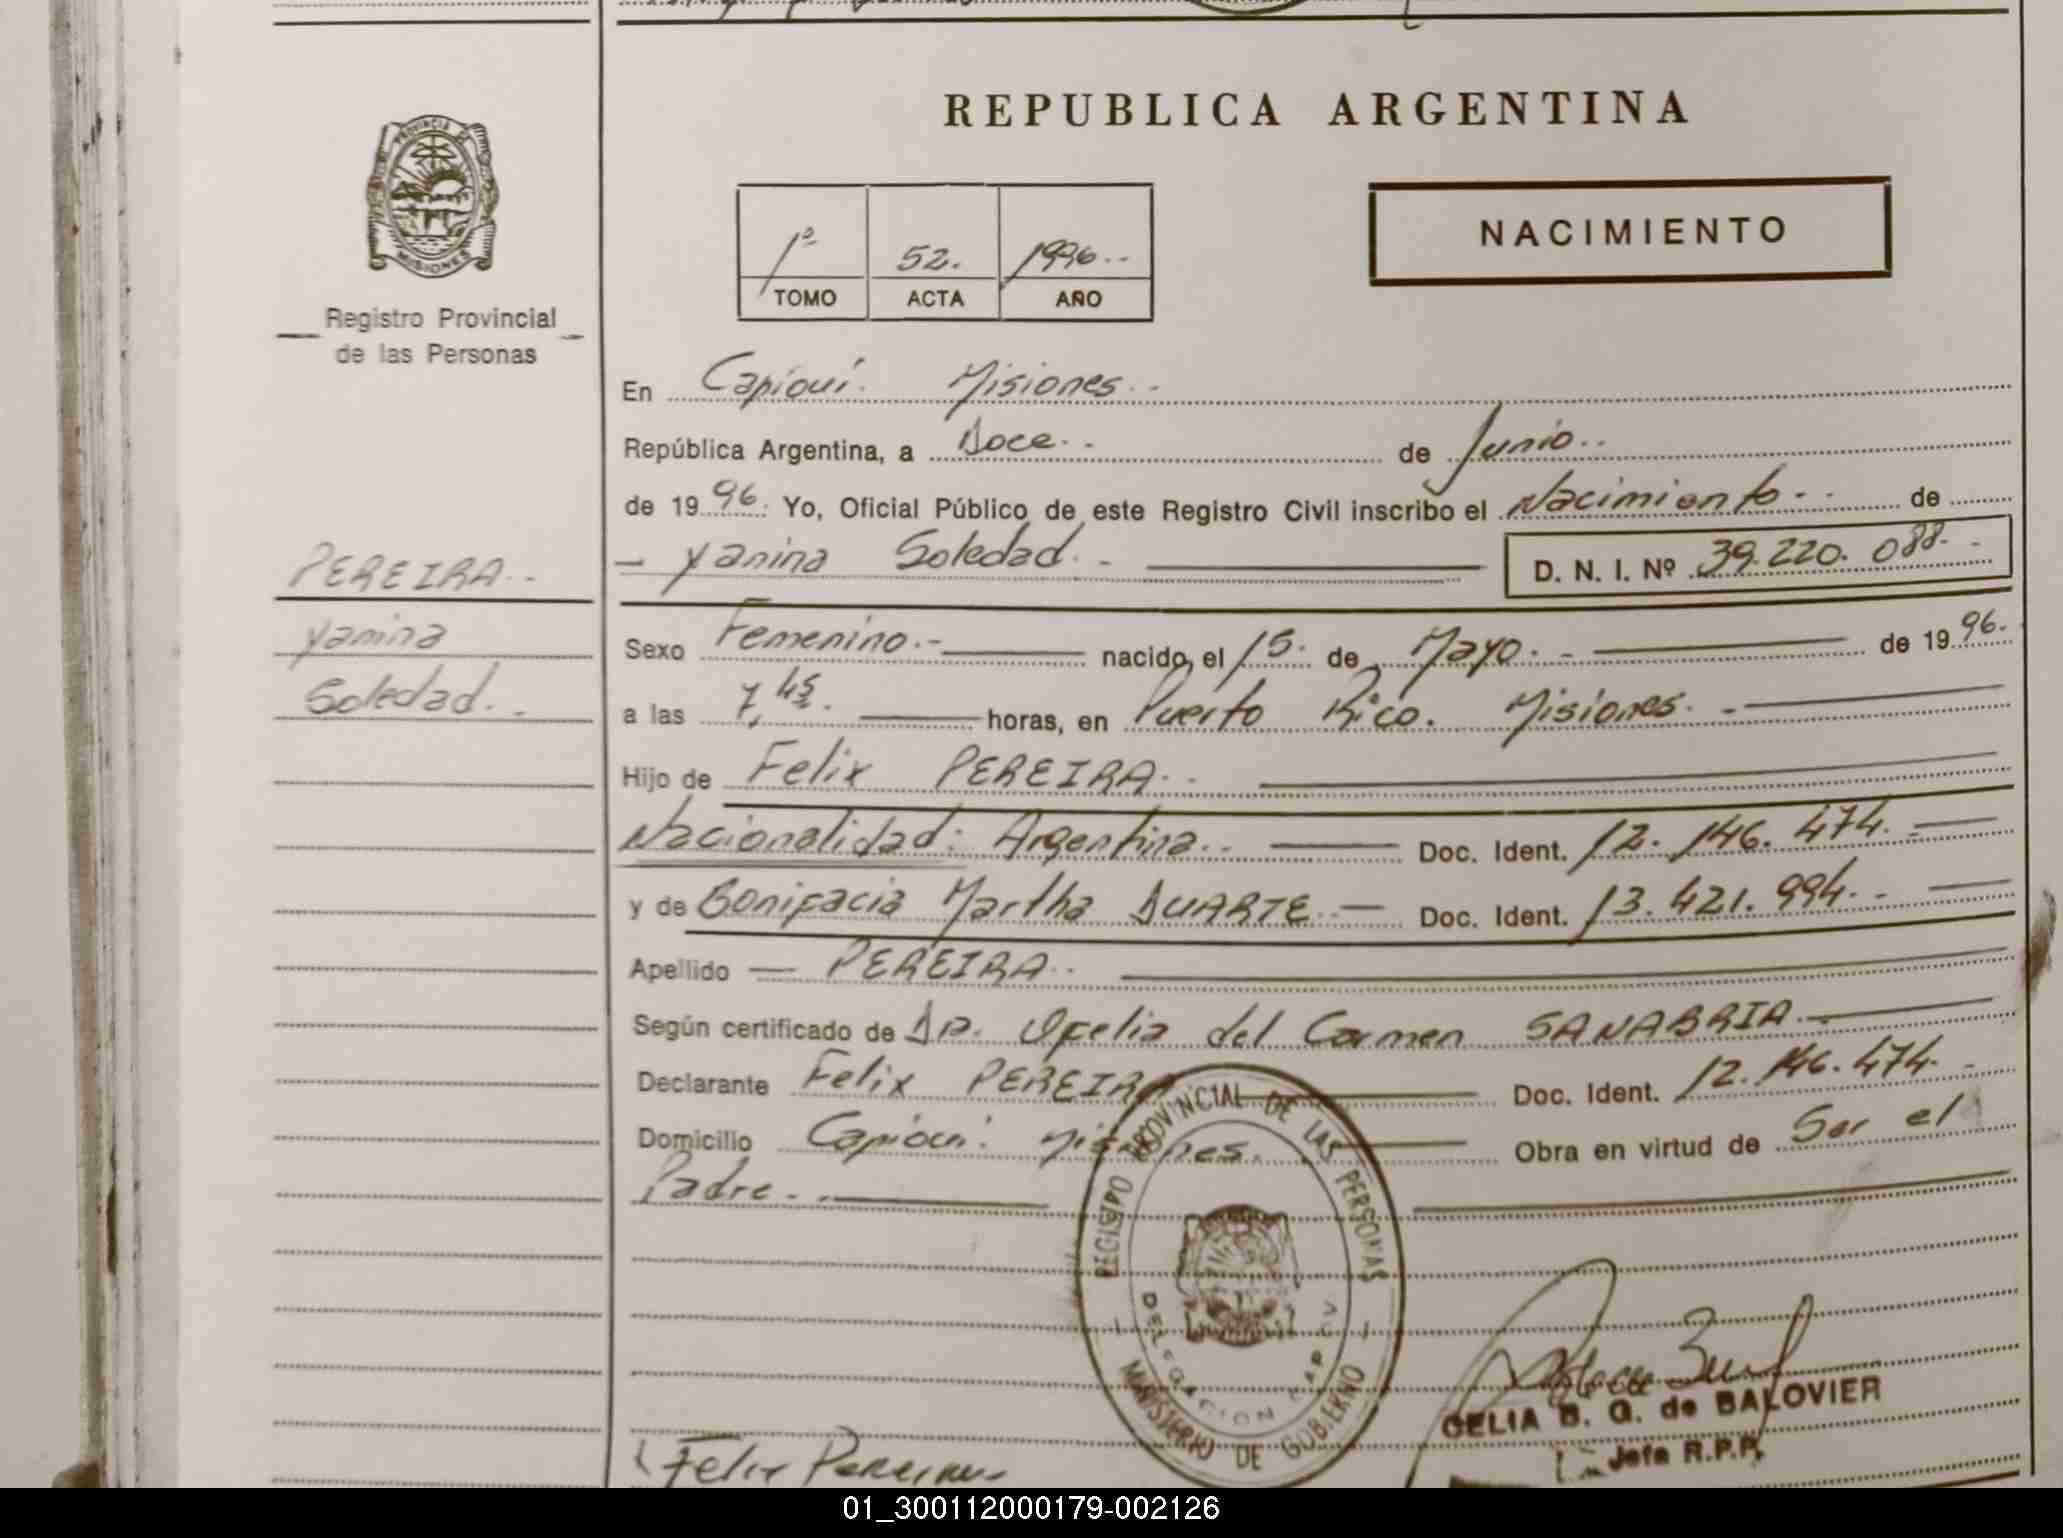 REPUBLICA ARGENTINA
PROVINCIA DE
MISIONES
Registro Provincial
de las Personas
1º 52. 1996..
TOMO ACTA AÑO
NACIMIENTO
En Capioví. Misiones..
República Argentina, a Doce.. de Junio..
de 1996. Yo, Oficial Público de este Registro Civil inscribo el Nacimiento.. de
- Yanina Soledad. - D. N. I. Nº 39.220.088.-
PEREIRA..
Yanina
Soledad..
Sexo Femenino.- nacido, el 15. de Mayo.- de 1996.
a las 7,45. horas, en Puerto Rico. Misiones.-
Hijo de Felix PEREIRA..
Nacionalidad: Argentina.. Doc. Ident. 12.146.474.-
y de Bonifacia Martha DUARTE.- Doc. Ident. 13.421.994.-
Apellido - PEREIRA..
Según certificado de Dra. Ofelia del Carmen SANABRIA.-
Declarante Felix PEREIRA Doc. Ident. 12.146.474.-
Domicilio Capioví. Misiones. Obra en virtud de Ser el
Padre..
REGISTRO PROVINCIAL DE LAS PERSONAS
DELEGACION CAPIOVI
MINISTERIO DE GOBIERNO
CELIA B. G. de BALOVIER
Jefa R.P.P.
Felix Pereira
01_300112000179-002126